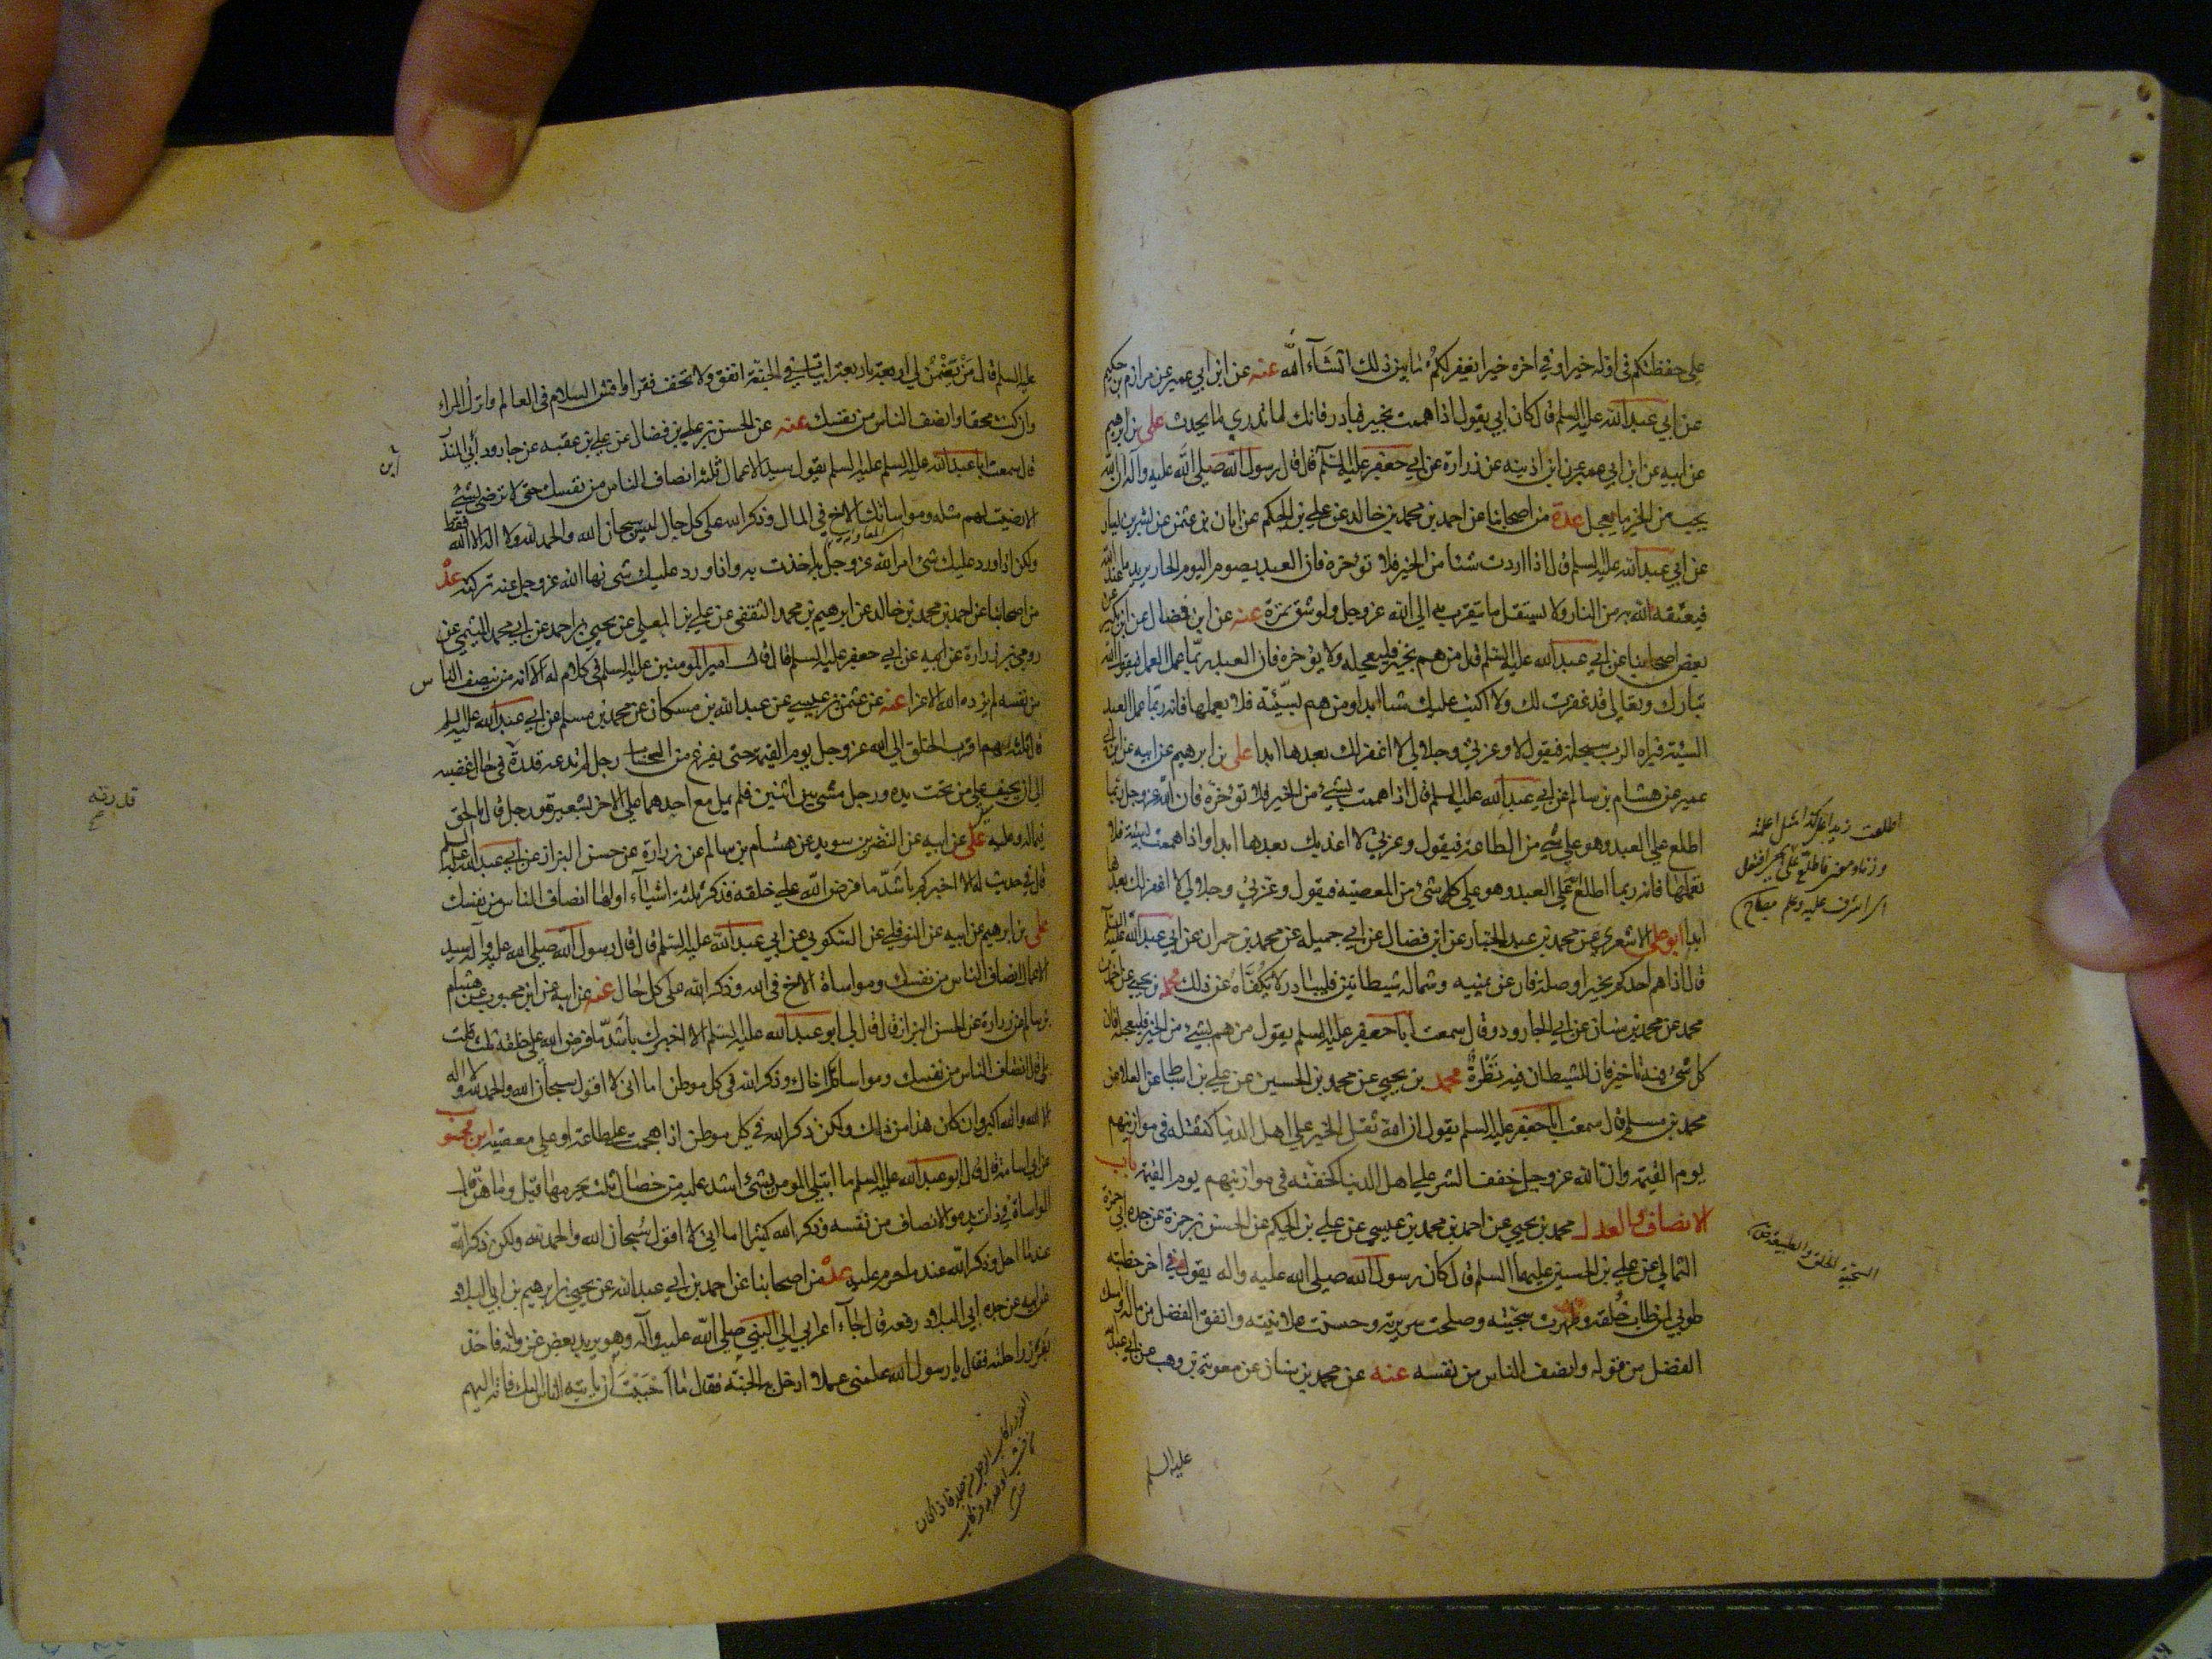 على حفظتكم فى اوله خيرا وفي اخره خيرا يغفر لكم ما بين ذلك انشآء الله عنه عن ابن ابي عمير عن مرازم بن حكيم
عن ابي عبدالله عليه السلم قال كان ابي يقول اذا هممت بخير فبادر فانك لا تدري ما يحدث على بن ابرهيم
عن ابيه عن ابن ابي عمير عن ابن اذينه عن زرارة عن ابي جعفر عليه السلم قال قال رسول الله صلى الله عليه وآله ان الله
يحب من الخير ما يعجل عدة من اصحابنا عن احمد بن محمد بن خالد عن علي بن الحكم عن ابان بن عثمن عن بشر بن يسار
عن ابي عبدالله عليه السلم قال اذا اردت شيئا من الخير فلا تؤخره فان العبد يصوم اليوم الحار يريد ما عند الله
فيعتقه الله به من النار ولا يستقل ما يتقرب به الى الله عز وجل ولو شق تمرة عنه عن ابن فضال عن ابن بكير عن
بعض اصحابنا عن ابي عبد الله عليه السلم قال من هم بخير فليعجله ولا يؤخره فان العبد ربما عمل العمل فيقول الله
تبارك وتعالى قد غفرت لك ولا اكتب عليك شيئا ابدا ومن هم بسيئة فلا يعملها فانه ربما عمل العبد
السيئة فيراه الرب سبحانه فيقول لا وعزتي وجلالي لا اغفر لك بعدها ابدا على بن ابرهيم عن ابيه عن ابن ابي
عمير عن هشام بن سالم عن ابي عبدالله عليه السلم قال اذا هممت بشئ من الخير فلا تؤخره فان الله عز وجل ربما
اطلع على العبد وهو على شئ من الطاعة فيقول وعزتي لا اعذبك بعدها ابدا واذا هممت بسيئة فلا
تعملها فانه ربما اطلع على العبد وهو على شئ من المعصية فيقول وعزتي وجلالي لا اغفر لك بعدها
ابدا ابو على الاشعري عن محمد بن عبد الجبار عن ابن فضال عن ابي جميله عن محمد بن حمران عن ابي عبدالله عليه السلم
قال اذا هم احدكم بخير او صلة فان عن يمينه وشماله شيطانين فليبادر لا يكفاه عن ذلك محمد بن يحيى عن احمد بن
محمد عن محمد بن سنان عن ابي الجارود قال سمعت ابا جعفر عليه السلم يقول من هم بشئ من الخير فليعجله فان
كل شئ فيه تاخير فان للشيطان فيه نظرة محمد بن يحيى عن محمد بن الحسين عن علي بن اسباط عن العلا عن
محمد بن مسلم قال سمعت ابا جعفر عليه السلم يقول ان الله ثقل الخير على اهل الدنيا كثقله فى موازينهم
يوم القيمة وان الله عز وجل خفف الشر على اهل الدنيا كخفته في موازينهم يوم القيمة باب
الانصاف والعدل محمد بن يحيى عن احمد بن محمد بن عيسى عن علي بن الحكم عن الحسن بن حمزة عن جده ابي حمزة
الثمالي عن علي بن الحسين عليهما السلم قال كان رسول الله صلى الله عليه واله يقول في اخر خطبته
طوبى لمن طاب خلقه وطهرت سجيته وصلحت سريرته وحسنت علانيته وانفق الفضل من ماله وامسك
الفضل من قوله وانصف الناس من نفسه عنه عن محمد بن سنان عن معوية بن وهب عن ابي عبدالله
عليه السلم
عليه السلم قال من يضمن لي اربعة باربعة ابيات في الجنة انفق ولا تخف فقرا وافش السلام فى العالم واترك المراء
وان كنت محقا وانصف الناس من نفسك عنه عن الحسن بن علي بن فضال عن علي بن عقبه عن جارود أبي المنذر
قال سمعت ابا عبدالله عليه السلم يقول سيد الاعمال ثلثة انصاف الناس من نفسك حتى لا ترضى بشئ
الا رضيت لهم مثله ومواساتك الاخ في المال وذكر الله على كل حال ليس سبحان الله والحمد لله ولا اله الا الله فقط
ولكن اذا ورد عليك شئ امر الله عز وجل به اخذت به واذا ورد عليك شئ نها الله عز وجل عنه تركته عدة
من اصحابنا عن احمد بن محمد بن خالد عن ابرهيم بن محمد الثقفي عن علي بن المعلى عن يحيى بن احمد عن ابي محمد الميثمي عن
رومي بن زرارة عن ابيه عن ابي جعفر عليه السلم قال قال امير المومنين عليه السلم في كلام له الا انه من ينصف الناس
من نفسه لم يزده الله الا عزا عنه عن عثمن بن عيسى عن عبدالله بن مسكان عن محمد بن مسلم عن ابي عبدالله عليه السلم
قال ثلثة هم اقرب الخلق الى الله عز وجل يوم القيمة حتى يفرغ من الحساب رجل لم تدعه قدرة في حال غضبه
الى ان يحيف على من تحت يده ورجل مشى بين اثنين فلم يمل مع احدهما على الاخر بشعيرة ورجل قال بالحق
فيما له وعليه على عن ابيه عن النضر بن سويد عن هشام بن سالم عن زرارة عن حسن البزاز عن ابي عبدالله عليه السلم
قال في حديث له الا اخبركم باشد ما فرض الله على خلقه فذكر ثلثة اشيآء اولها انصاف الناس من نفسك
على بن ابرهيم عن ابيه عن النوفلي عن السكوني عن ابي عبدالله عليه السلم قال قال رسول الله صلى الله عليه وآله سيد
الاعمال انصاف الناس من نفسك ومواساة الاخ في الله وذكر الله على كل حال عنه عن ابيه عن ابن محبوب عن هشام
بن سالم عن زرارة عن الحسن البزاز قال قال لي ابو عبدالله عليه السلم الا اخبرك باشد ما فرض الله على خلقه ثلث قلت
بلى قال انصاف الناس من نفسك ومواساتك اخاك وذكر الله في كل موطن اما اني لا اقول سبحان الله والحمد لله ولا اله
الا الله والله اكبر وان كان هذا من ذاك ولكن ذكر الله في كل موطن اذا هجمت على طاعته او على معصيه ابن محبوب
عن ابي اسامة قال قال ابو عبدالله عليه السلم ما ابتلي المومن بشئ اشد عليه من خصال ثلث يحرمها قيل وما هن قال
المواساة في ذات يده والانصاف من نفسه وذكر الله كثيرا اما اني لا اقول سبحان الله والحمد لله ولكن ذكر الله
عند ما احل وذكر الله عند ما حرم عليه عدة من اصحابنا عن احمد بن ابي عبدالله عن يحيى بن ابرهيم بن ابي البلاد
عن ابيه عن جده ابي البلاد رفعه قال جآء اعرابي الى النبي صلى الله عليه وآله وهو يريد بعض غزواته فاخذ
بغرز راحلته فقال يا رسول الله علمني عملا ادخل به الجنة فقال ما احببت ان ياتيه الناس اليك فاته اليهم